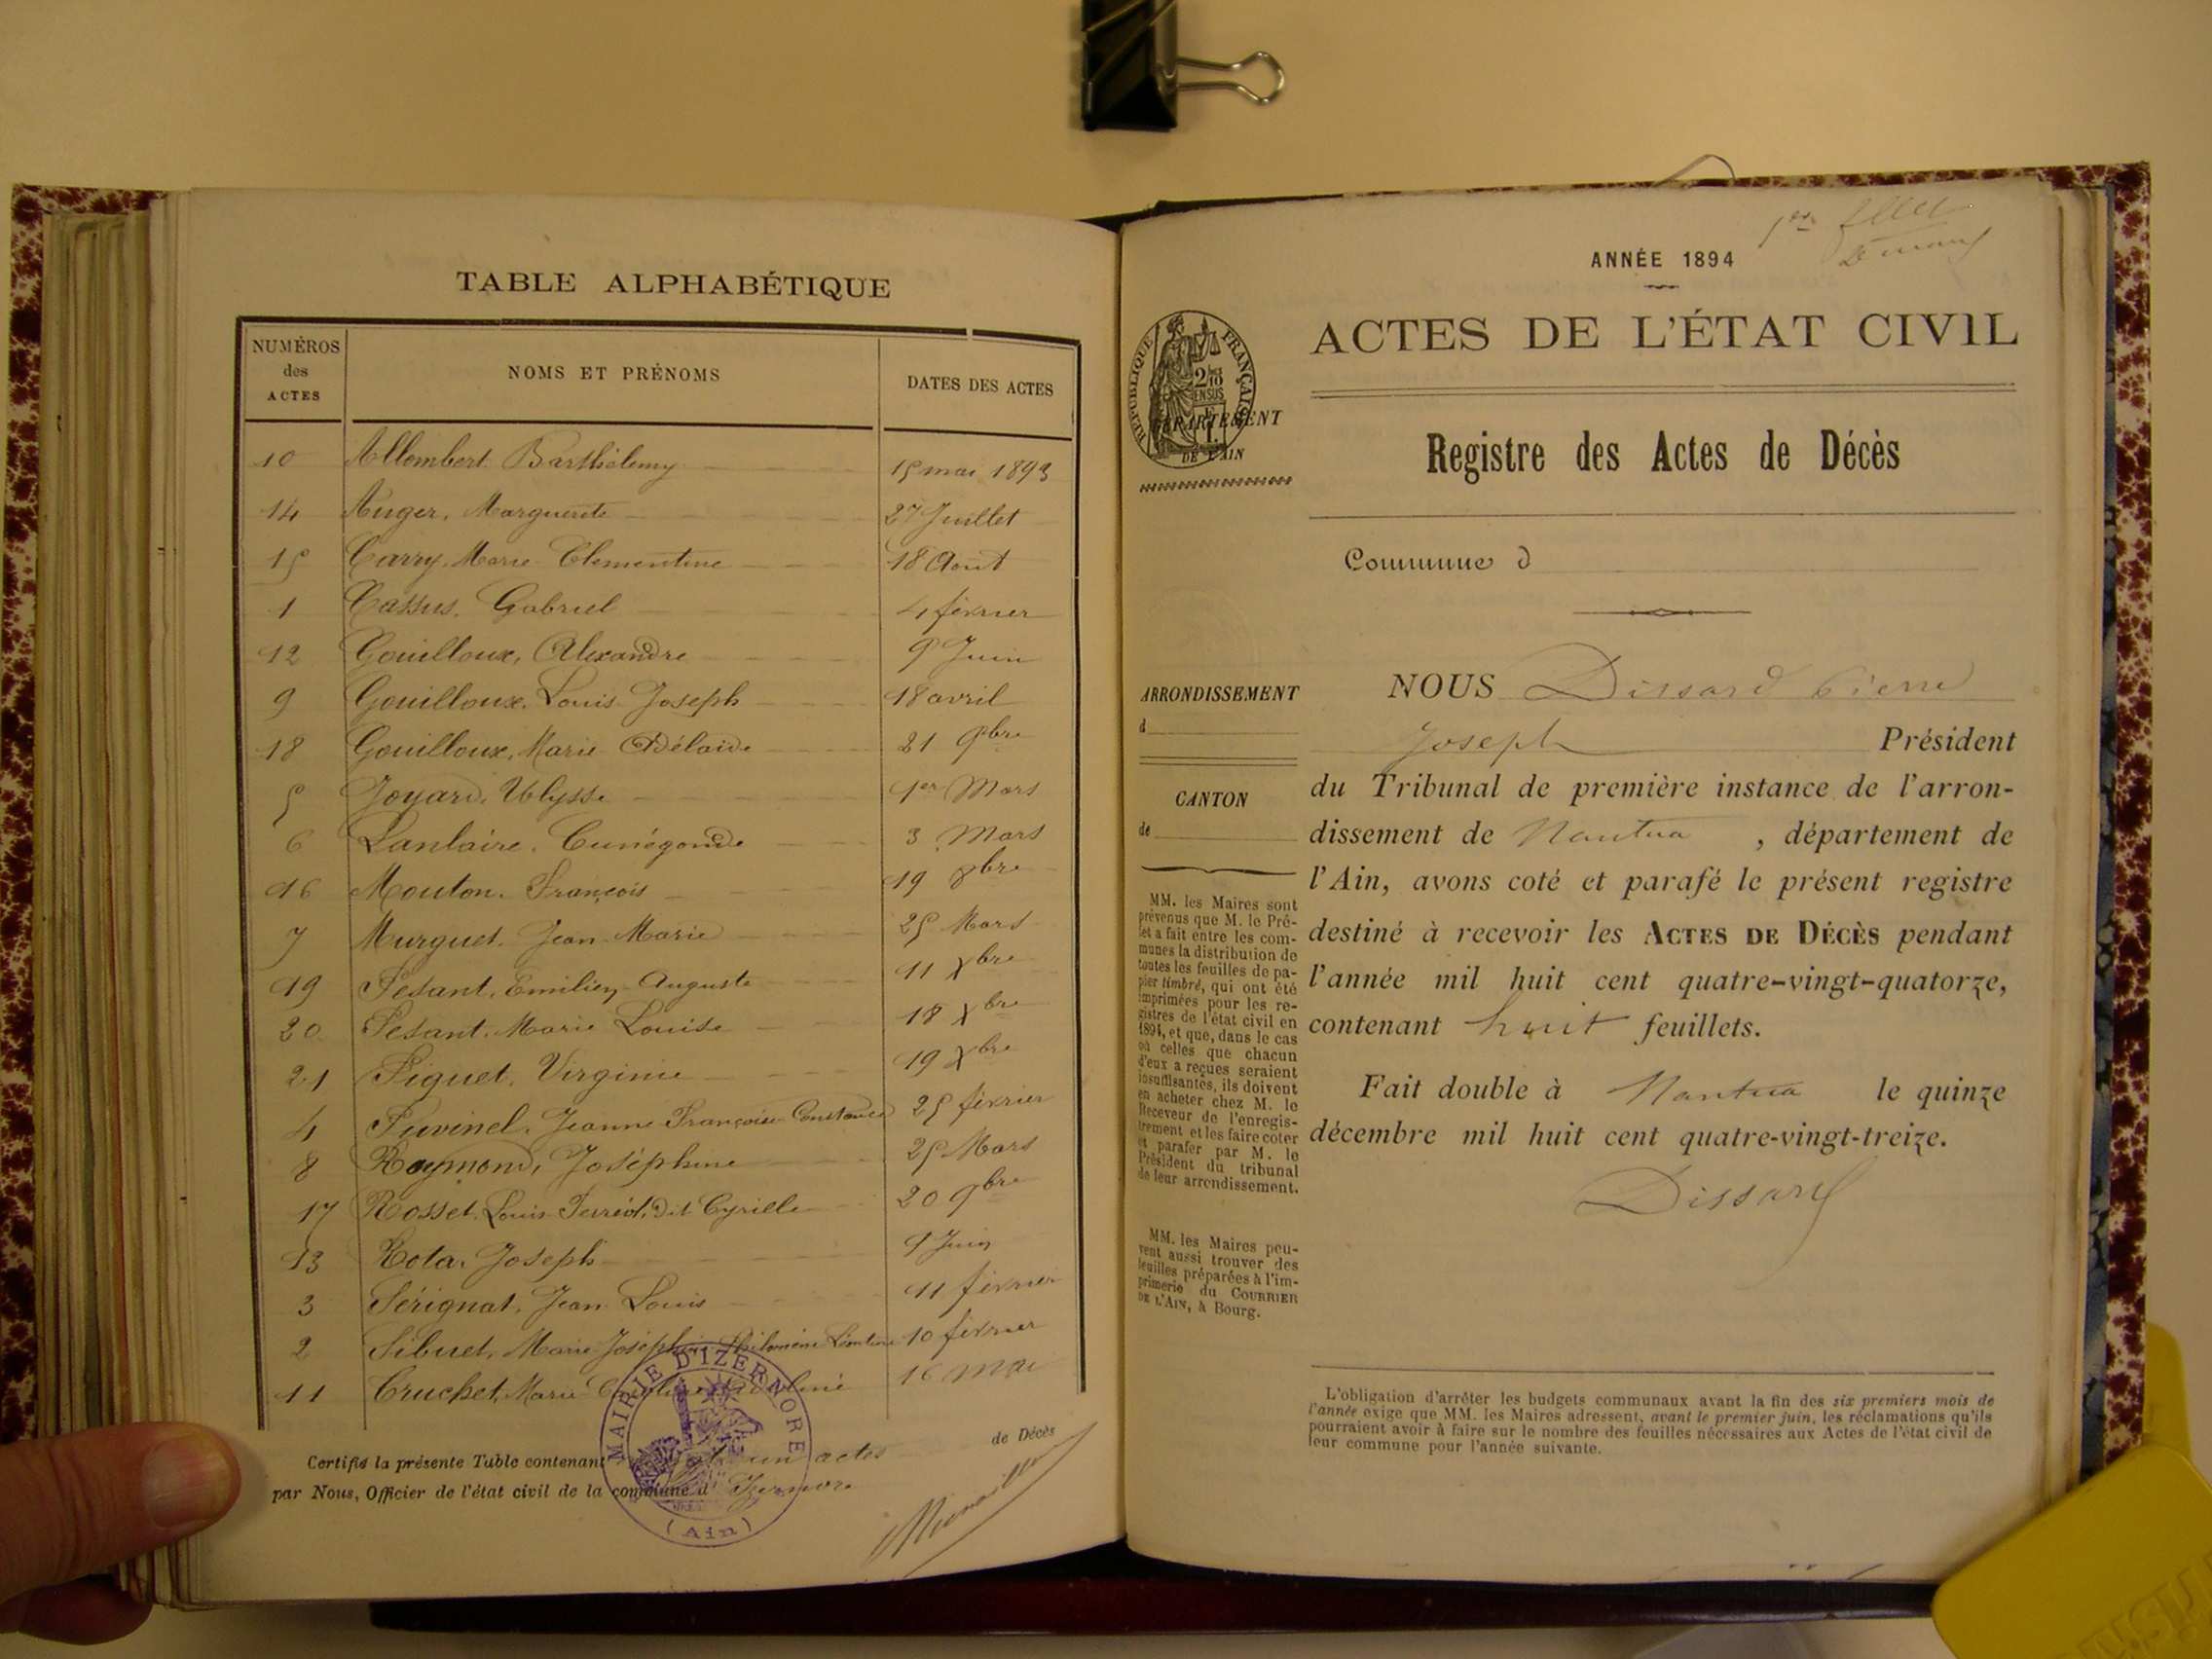 TABLE ALPHABÉTIQUE
NUMÉROS des ACTES NOMS ET PRÉNOMS DATES DES ACTES
10 Allombert Barthélemy 15 mai 1893
14 Auger, Marguerite 27 Juillet
15 Carry, Marie Clementine 18 Aout
1 Cassus, Gabriel 4 février
12 Gouilloux, Alexandre 9 Juin
9 Gouilloux, Louis Joseph 18 avril
18 Gouilloux, Marie Adélaide 21 9bre
5 Joyard, Ulysse 1er Mars
6 Lanlaire, Cunégonde 3 Mars
16 Mouton, François 19 8bre
7 Murguet, Jean Marie 25 Mars
19 Pesant, Emilien Auguste 11 Xbre
20 Pesant, Marie Louise 18 Xbre
21 Piguet, Virginie 19 Xbre
4 Puvinel, Jeanne Françoise Constance 25 février
8 Raymond, Joséphine 25 Mars
17 Rosset, Louis dit Cyrille 20 9bre
13 Rota, Joseph 9 Juin
3 Sérignat, Jean Louis 11 février
2 Sibuet, Marie Joséphine Philomène 10 février
11 Cruchet, Marie 16 mai
Certifié la présente Table contenant un actes de Décès
par Nous, Officier de l'état civil de la commune d' Izernore
MAIRIE D'IZERNORE
(Ain)
ANNÉE 1894
RÉPUBLIQUE FRANÇAISE
DÉPARTEMENT
DE L'AIN
ACTES DE L'ÉTAT CIVIL
Registre des Actes de Décès
Commune d
ARRONDISSEMENT
d
CANTON
de
NOUS Dissard Pierre
Joseph Président
du Tribunal de première instance de l'arron-
dissement de Nantua , département de
l'Ain, avons coté et parafé le présent registre
destiné à recevoir les ACTES DE DÉCÈS pendant
l'année mil huit cent quatre-vingt-quatorze,
contenant huit feuillets.
Fait double à Nantua le quinze
décembre mil huit cent quatre-vingt-treize.
Dissard
MM. les Maires sont
prévenus que M. le Pré-
fet a fait entre les com-
munes la distribution de
toutes les feuilles de pa-
pier timbré, qui ont été
imprimées pour les re-
gistres de l'état civil en
1894, et que, dans le cas
où celles que chacun
d'eux a reçues seraient
insuffisantes, ils doivent
en acheter chez M. le
Receveur de l'enregis-
trement et les faire coter
et parafer par M. le
Président du tribunal
de leur arrondissement.
MM. les Maires peu-
vent aussi trouver des
feuilles préparées à l'im-
primerie du COURRIER
DE L'AIN, à Bourg.
L'obligation d'arrêter les budgets communaux avant la fin des six premiers mois de
l'année exige que MM. les Maires adressent, avant le premier juin, les réclamations qu'ils
pourraient avoir à faire sur le nombre des feuilles nécessaires aux Actes de l'état civil de
leur commune pour l'année suivante.